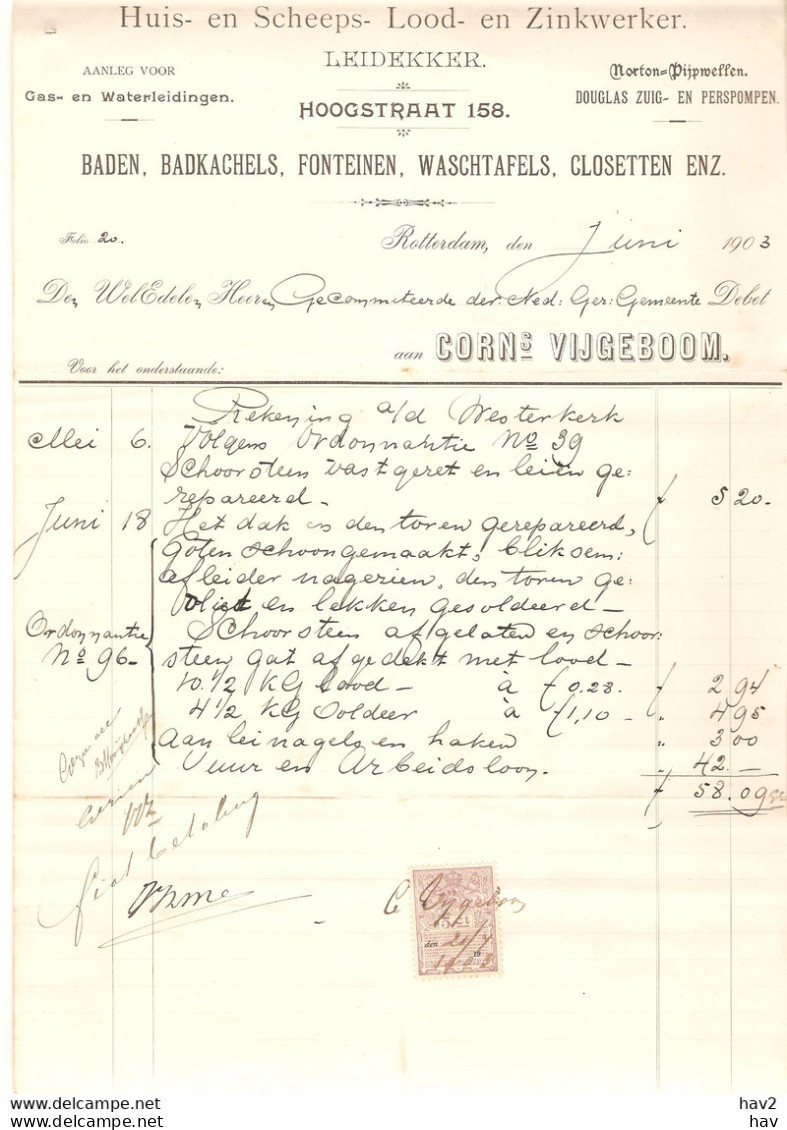 Huis- en Scheeps- Lood- en Zinkwerker.
LEIDEKKER.
AANLEG VOOR
Gas- en Waterleidingen.
HOOGSTRAAT 158.
Norton=Pijpwellen.
DOUGLAS ZUIG- EN PERSPOMPEN.
BADEN, BADKACHELS, FONTEINEN, WASCHTAFELS, CLOSETTEN ENZ.
Folio 20.
Rotterdam, den Juni 1903
Den WelEdelen Heeren Gecommiteerde der Ned: Ger: Gemeente Debet
aan CORNS VIJGEBOOM.
Voor het onderstaande:
Rekening a/d Westerkerk
Mei 6. Volgens Ordonnantie No 39
Schoorsteen vast geret en leien ge:
repareerd - f 5 20.-
Juni 18 Het dak en den toren gerepareerd,
goten schoongemaakt, bliksem:
afleider nagezien, den toren ge:
en lekken gesoldeerd -
Ordonnantie
No 96-
Schoorsteen afgelaten en schoor:
steen gat afgedekt met lood -
10.1/2 KG Lood - à f 0.28. f 2 94
4 1/2 KG Soldeer à f 1,10 - " 4 95
Aan leinagels en haken " 3 00
Vuur en Arbeidsloon. " 42. -
f 58.09
fiat betaling
C Vijgeboom
den 20/7
1903
hav2
hav